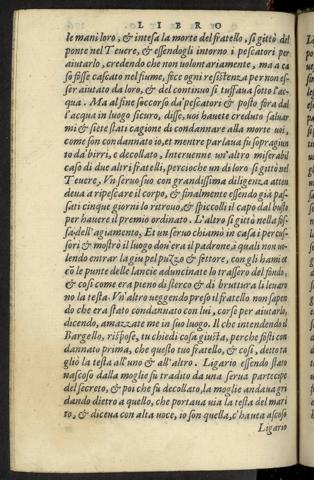 LIBRO
le mani loro, & intesa la morte del fratello, si gittò del
ponte nel Teuere, & essendogli intorno i pescatori per
aiutarlo, credendo che non uolontariamente, ma a ca
so fosse cascato nel fiume, fece ogni resistenza per non es-
ser aiutato da loro, & del continuo si tuffaua sotto l'ac
qua. Ma al fine soccorso da'pescatori & posto fora dal
l'acqua in luogo sicuro, disse, uoi hauete creduto saluar
mi & siete stati cagione di condannare alla morte uoi,
come son condannato io, et mentre parlaua fu sopragiun
to da'birri, e decollato, Interuenne un'altro miserabil
caso di due altri fratelli, percioche un di loro si gittò nel
Teuere, Vn seruo suo con grandissima diligenza attun
deua a ripescare il corpo, & finalmente essendo già pas-
sati cinque giorni lo ritrouò, & spiccolli il capo dal busto
per hauere il premio ordinato. L'altro si gittò nella fos-
sa dell'agiamento, Et un seruo chiamò in casa i percus-
sori & mostrò il luogo dou'era il padrone, i quali non uo-
lendo entrar la giu pel puzzo & fettore, con gli hami et
cō le punte delle lancie aduncinate lo trassero del fondo,
& così come era pieno di sterco & di bruttura li leuaro
no la testa. Vn'altro ueggendo preso il fratello non sapen
do che era stato condannato con lui, corse per aiutarlo,
dicendo, amazzate me in suo luogo. Il che intendendo il
Bargello, rispose, tu chiedi cosa giusta, perche fosti con
dannato prima, che questo tuo fratello, & così, detto ta
gliò la testa all'uno & all'altro. Ligario essendo stato
nascoso dalla moglie fu tradito da una serua partecipe
del secreto, & poi che fu decollato, la moglie andaua gri
dando dietro a quello, che portaua uia la testa del mari
to, & diceua con alta uoce, io son quella, c'hauea ascoso
Ligario